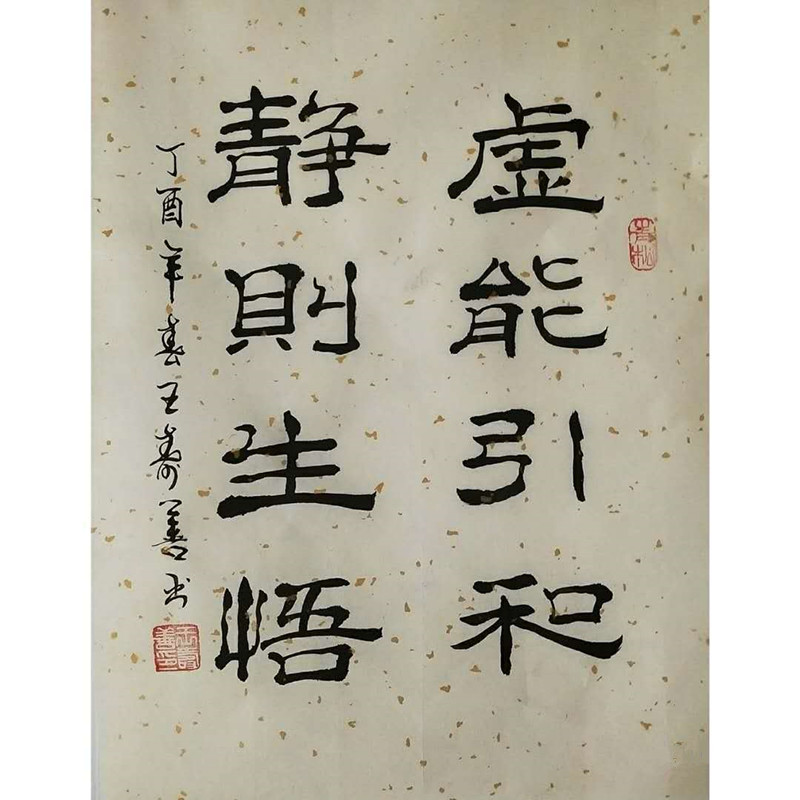 虛能引和
靜則生悟
丁酉年春王壽善书